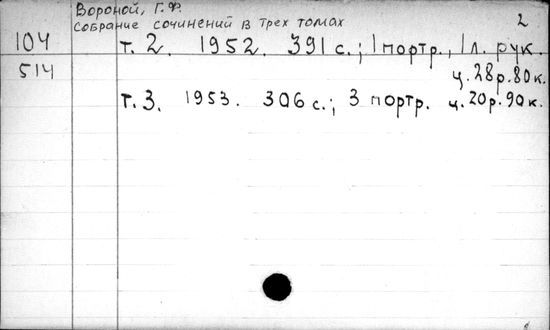 Вороной, Г.Ф.
Собрание сочинений в трех томах
2
104
т. 2. 1952. 391 с.; 1 портр., 1 л. рук.
514
ц. 28 р. 80 к.
т. 3. 1953. 306 с.; 3 портр. ц. 20 р. 90 к.